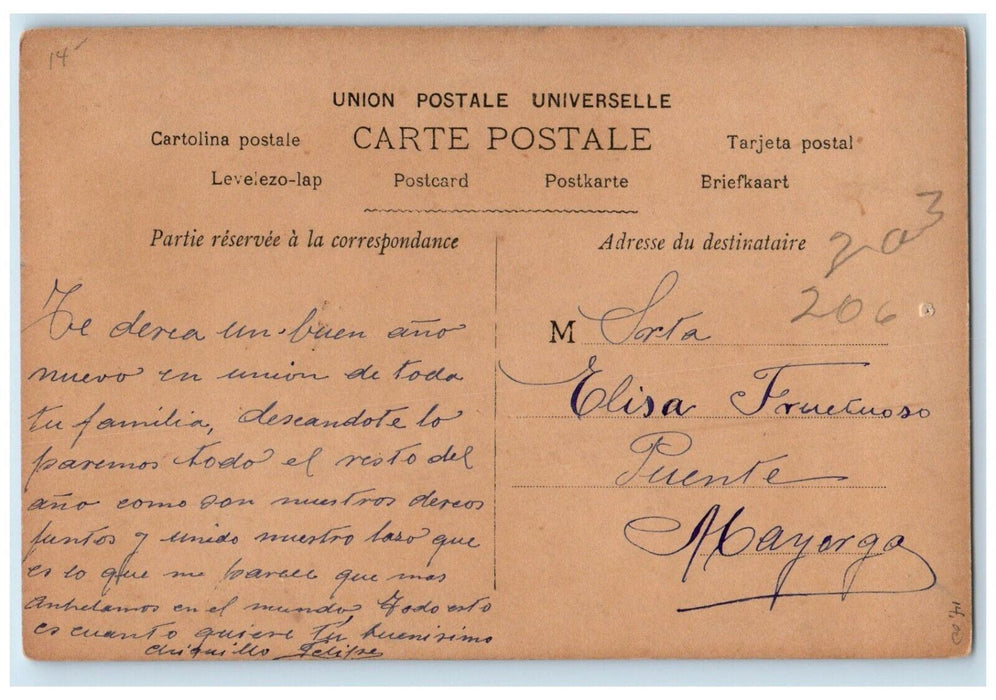 14
UNION POSTALE UNIVERSELLE
Cartolina postale CARTE POSTALE Tarjeta postal
Levelezo-lap Postcard Postkarte Briefkaart
Partie réservée à la correspondance
Adresse du destinataire
203
206
Te decea un buen año
nuevo en union de toda
tu familia, deseandote lo
paremos todo el resto del
año como son nuestros deceos
juntos y unido nuestro lazo que
es lo que me parece que mas
anhelamos en el mundo Todo esto
es cuanto quiere tú buenisimo
chiquillo Felipe
M Srta
Elisa Fructuoso
Puente
Mayorga